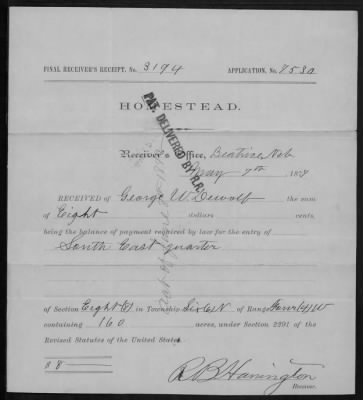 FINAL RECEIVER'S RECEIPT, No. 3194 APPLICATION, No. 7530
HOMESTEAD.
PAT. DELIVERED BY R.R.
Receiver's Office, Beatrice Neb
May 7th 187
RECEIVED OF George W. Dewolf the sum
of Eight dollars cents,
being the balance of payment required by law for the entry of
South East quarter
of Section Eight (8) in Township Six (6) N of Range Four (4) W
containing 160 acres, under Section 2291 of the
Revised Statutes of the United States.
$ 8
R B Harrington
Receiver.